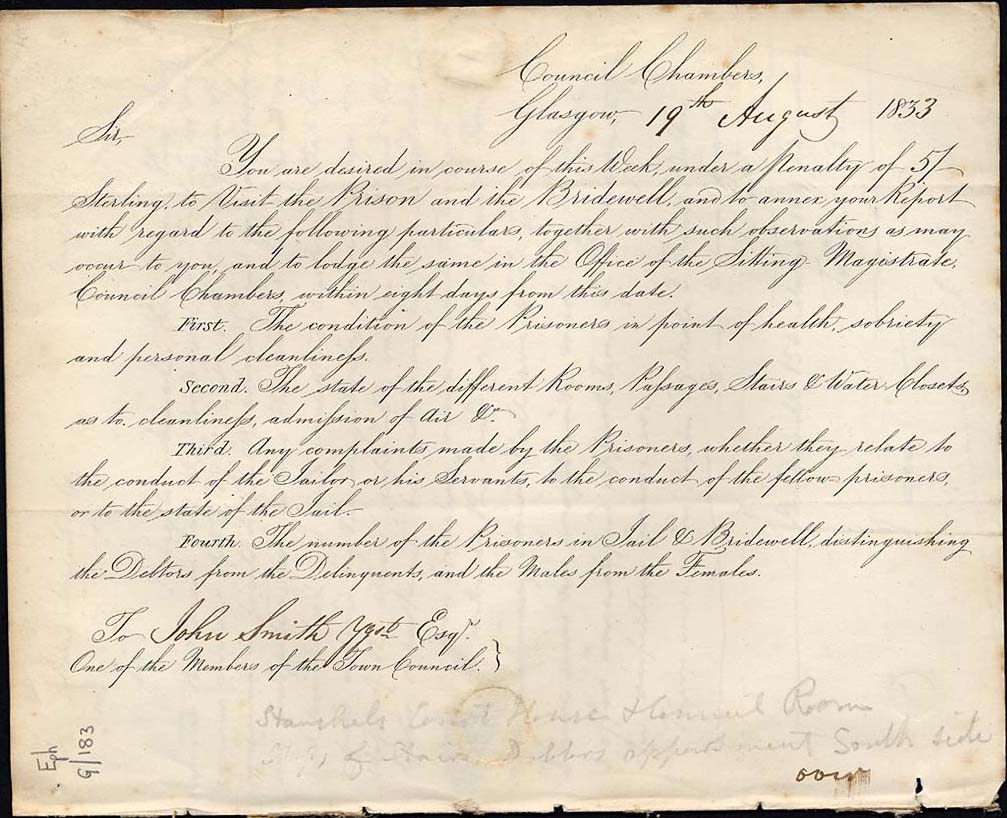 Council Chambers,
Glasgow, 19th August 1833
Sir,
You are desired in course of this Week, under a Penalty of 5/
Sterling, to Visit the Prison and the Bridewell, and to annex your Report
with regard to the following particulars, together with such observations as may
occur to you, and to lodge the same in the Office of the Sitting Magistrate,
Council Chambers, within eight days from this date.
First. The condition of the Prisoners in point of health, sobriety
and personal cleanliness.
Second. The state of the different Rooms, Passages, Stairs & Water Closets
as to cleanliness, admission of Air &c
Third. Any complaints made by the Prisoners, whether they relate to
the conduct of the Jailor or his Servants, to the conduct of the fellow prisoners,
or to the state of the Jail.
Fourth. The number of the Prisoners in Jail & Bridewell, distinguishing
the Debtors from the Delinquents, and the Males from the Females.
To John Smith Ygst Esqr.
One of the Members of the Town Council.
Court House & Council Room
of Stairs Debtors appartment South side
over
Eph
G/183